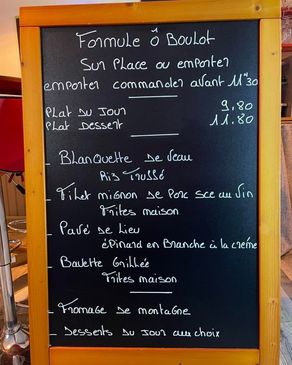 Formule Ô Boulot
Sur Place ou emporter
emporter commander avant 11"30
Plat Du Jour 9.80
Plat Dessert 11.80
- Blanquette de Veau
Riz Trussé
- Filet mignon de Porc sce au Vin
Frites maison
- Pavé de Lieu
épinard en Branche à la crème
- Bavette Grillée
Frites maison
- Fromage de montagne
- Desserts du Jour au choix